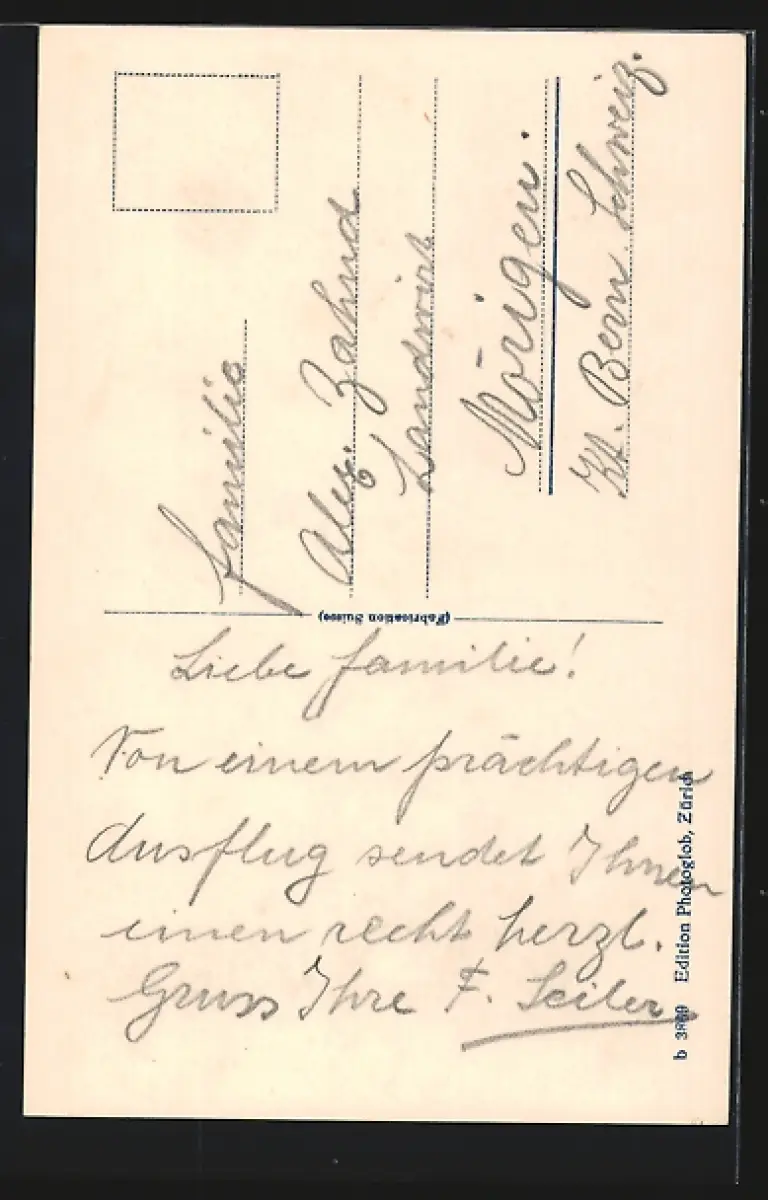 Familie
Alex. Zahnd
Landwirt
Mörigen.
Kt. Bern. Schweiz.
(Fabrication Suisse)
Liebe Familie!
Von einem prächtigen
Ausflug sendet Ihnen
einen recht herzl.
Gruss Ihre F. Seiler
b 3869 Edition Photoglob, Zürich